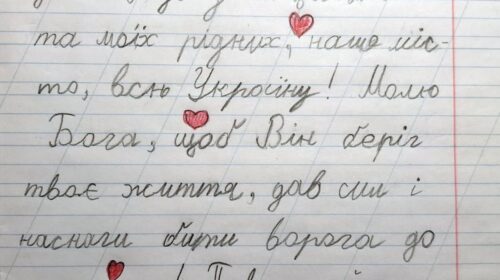 та моїх рідних, наше міс-
то, всю Україну! Молю
Бога, щоб Він беріг
твоє життя, дав сил і
наснаги бити ворога до